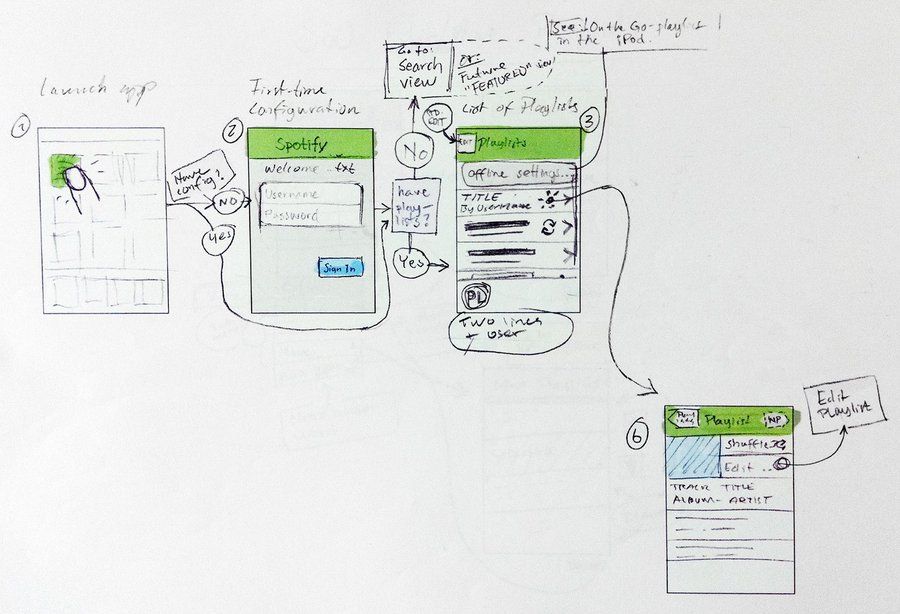 Launch app
1
Have
config?
NO
Yes
First-time
Configuration
2
Spotify
Welcome ..txt
Username
Password
Sign In
have
play-
lists?
No
Yes
Go to:
Search
view
or:
Future
"FEATURED" view
See: On the Go-playlist
in the iPod.
TO
EDIT
List of Playlists
3
EDIT
Playlists
Offline settings...
TITLE
By Username
PL
Two lines
+ user
6
Playlist
NP
Shuffle
Edit ...
TRACK TITLE
ALBUM - ARTIST
Edit
Playlist